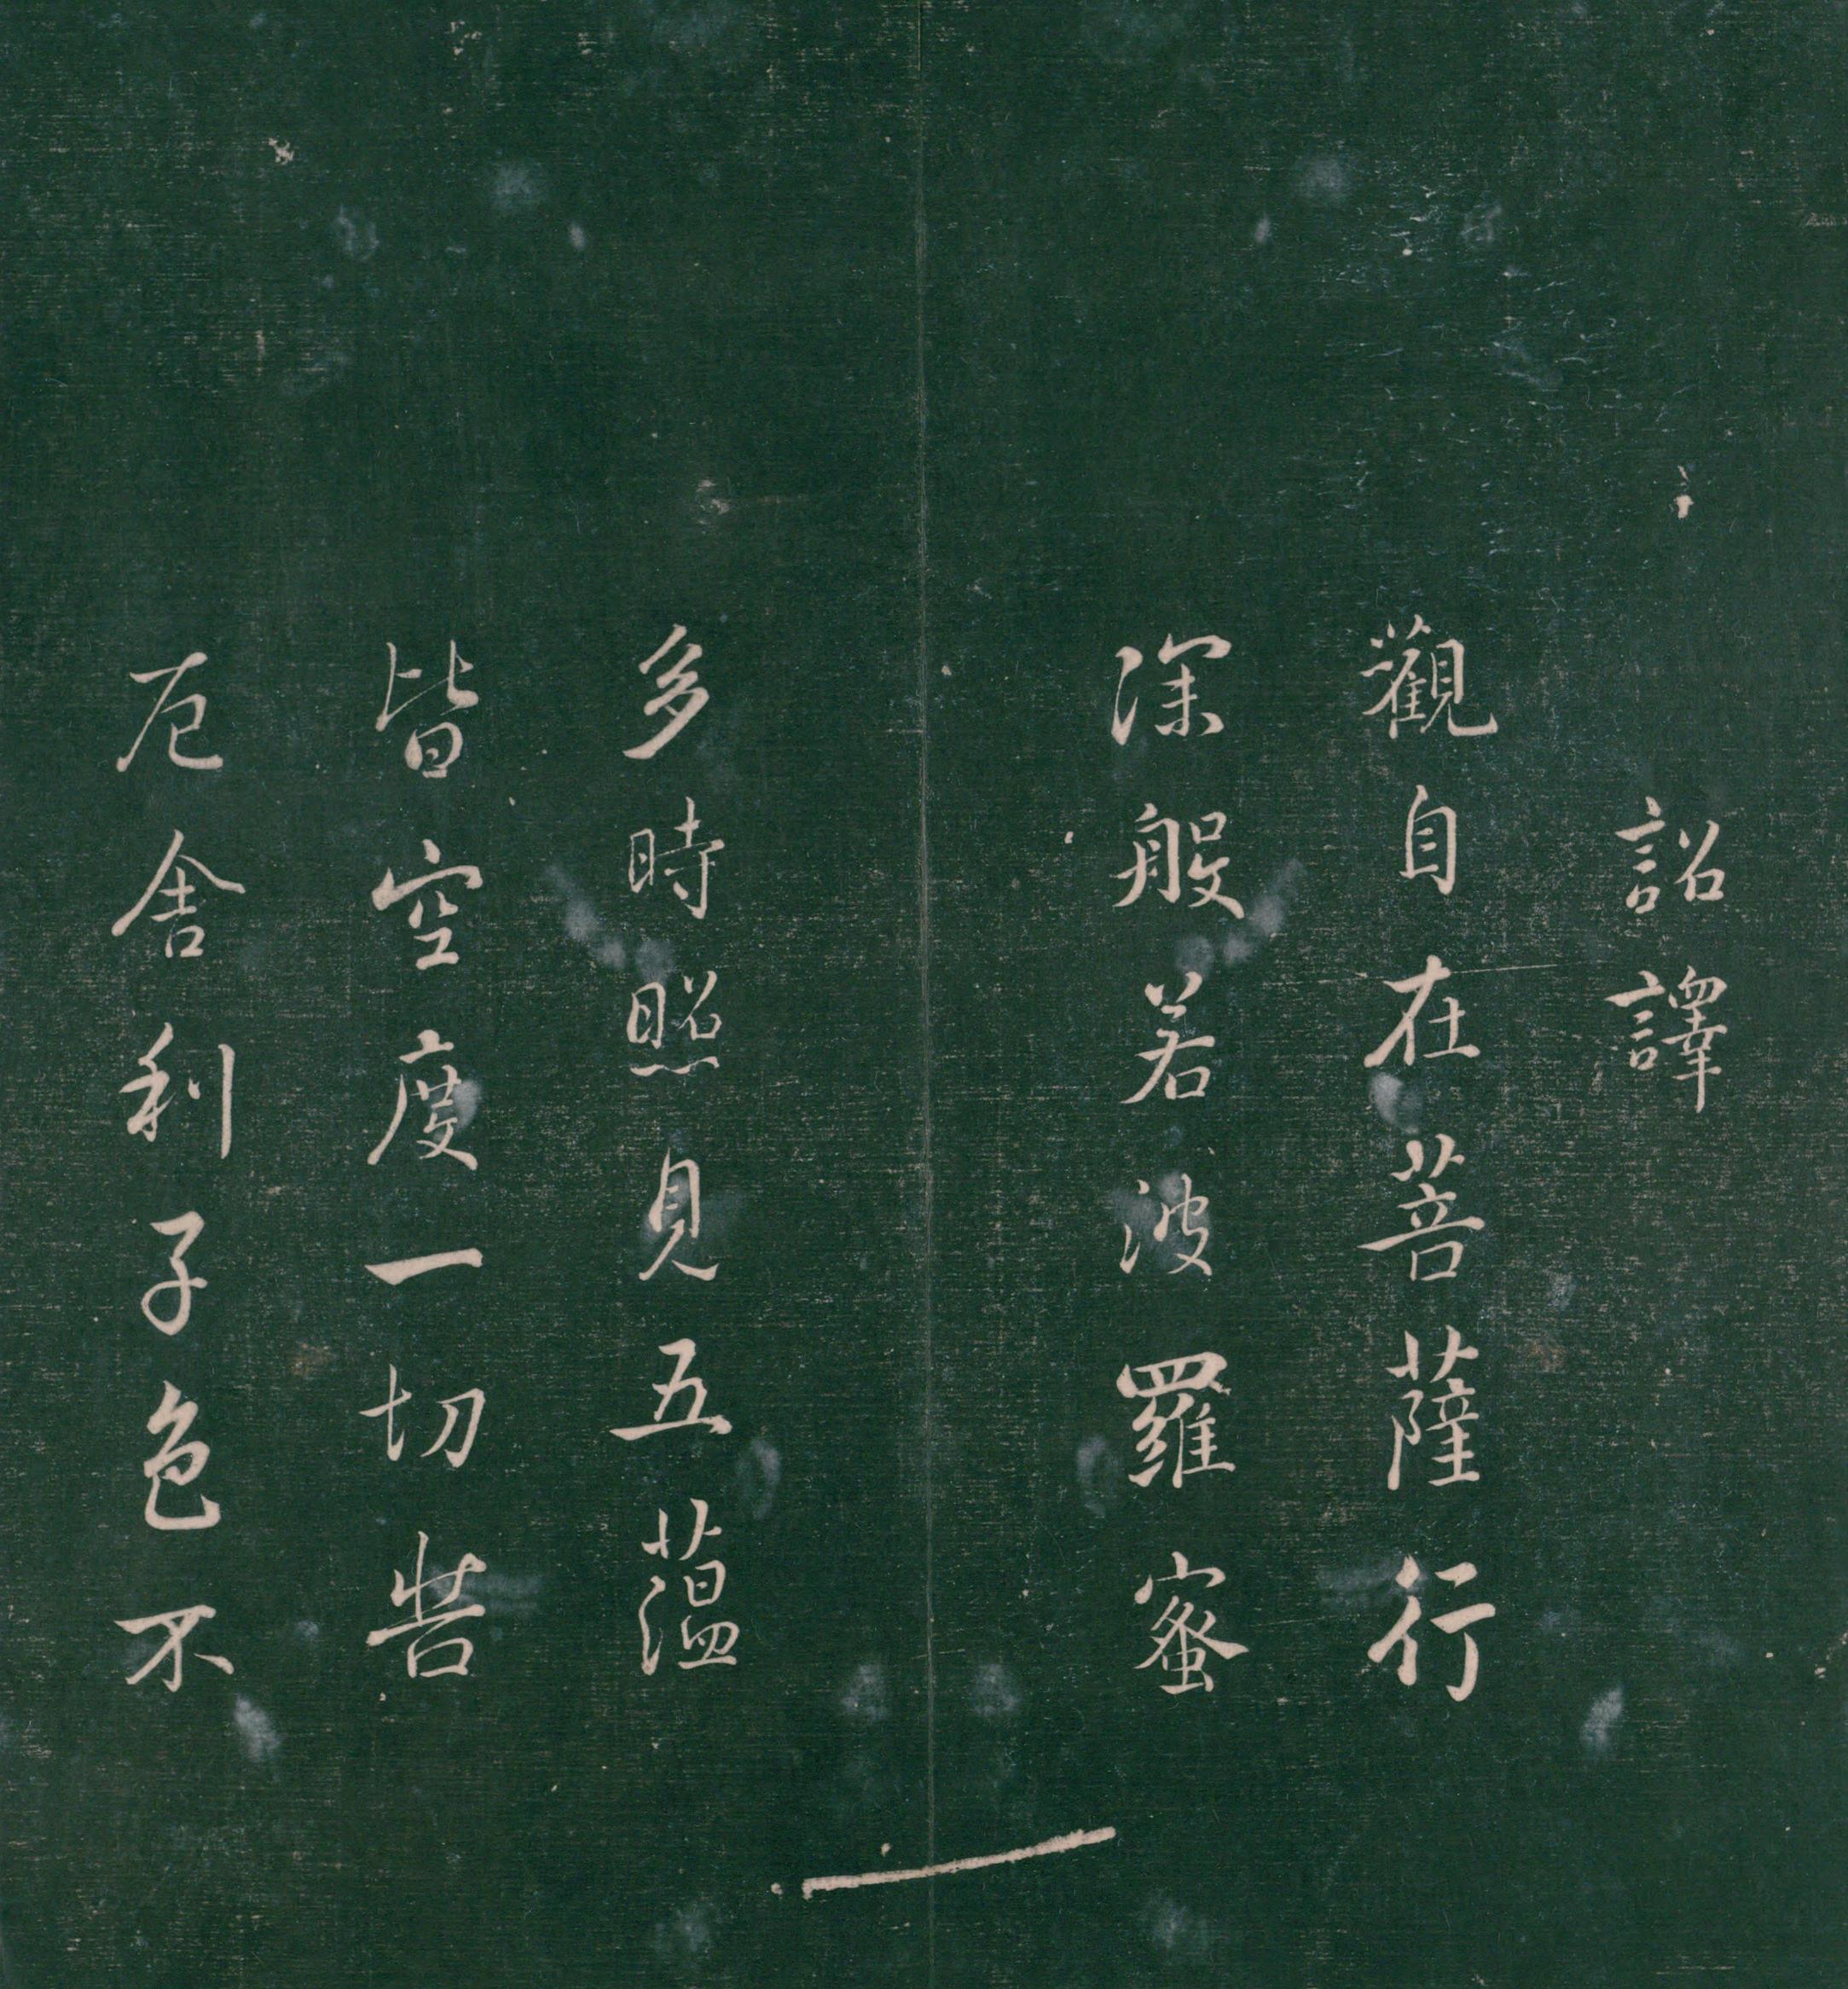 詔譯
觀自在菩薩行
深般若波羅蜜
多時照見五蘊
皆空度一切苦
厄舍利子色不